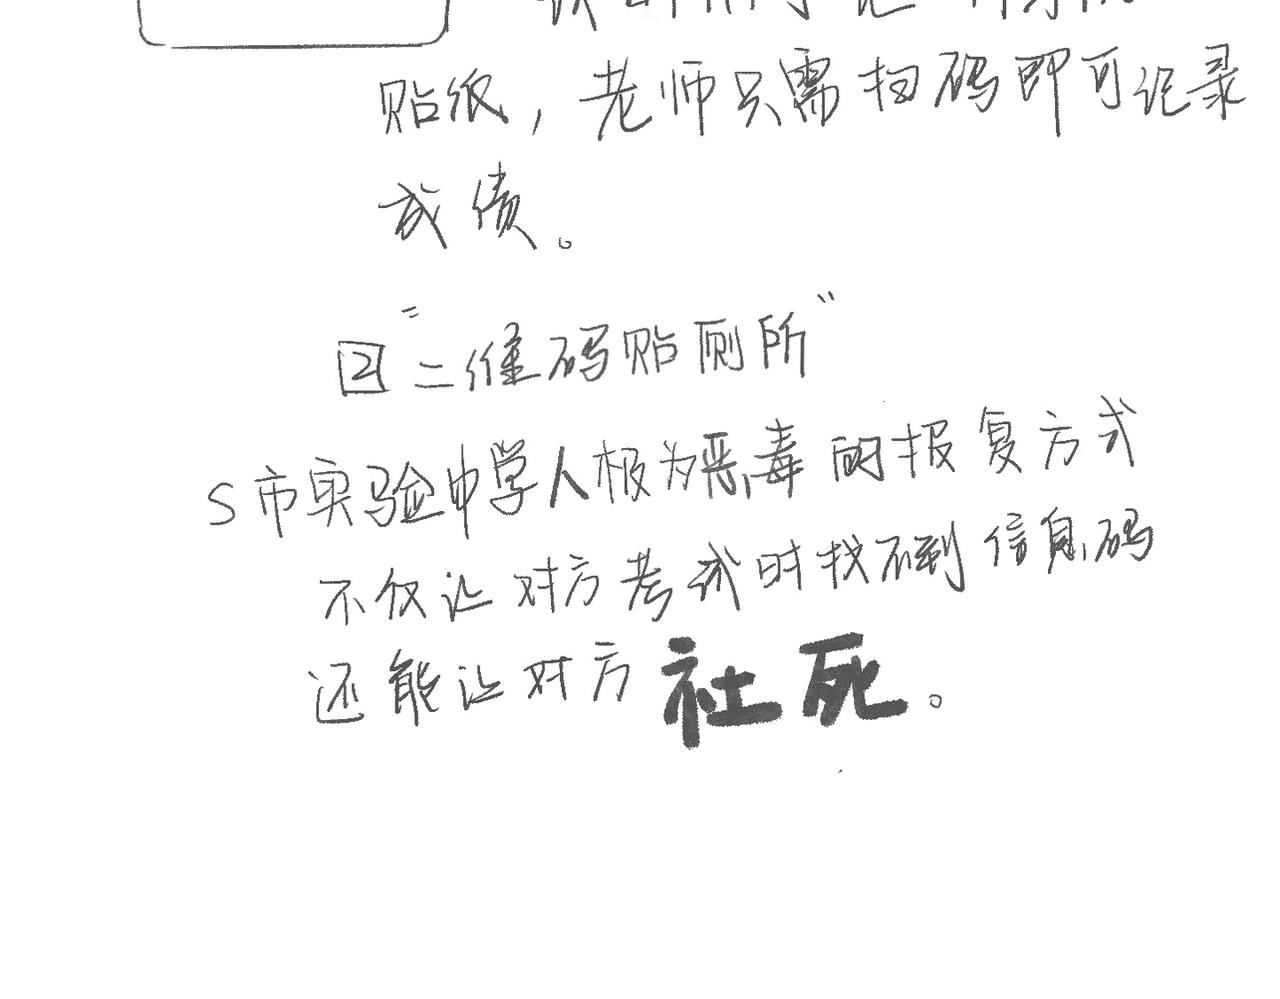 贴纸，老师只需扫码即可记录
成债。
② "二维码贴厕所"
S市实验中学人极为恶毒的报复方式
不仅让对方考试时找不到信息码
还能让对方社死。